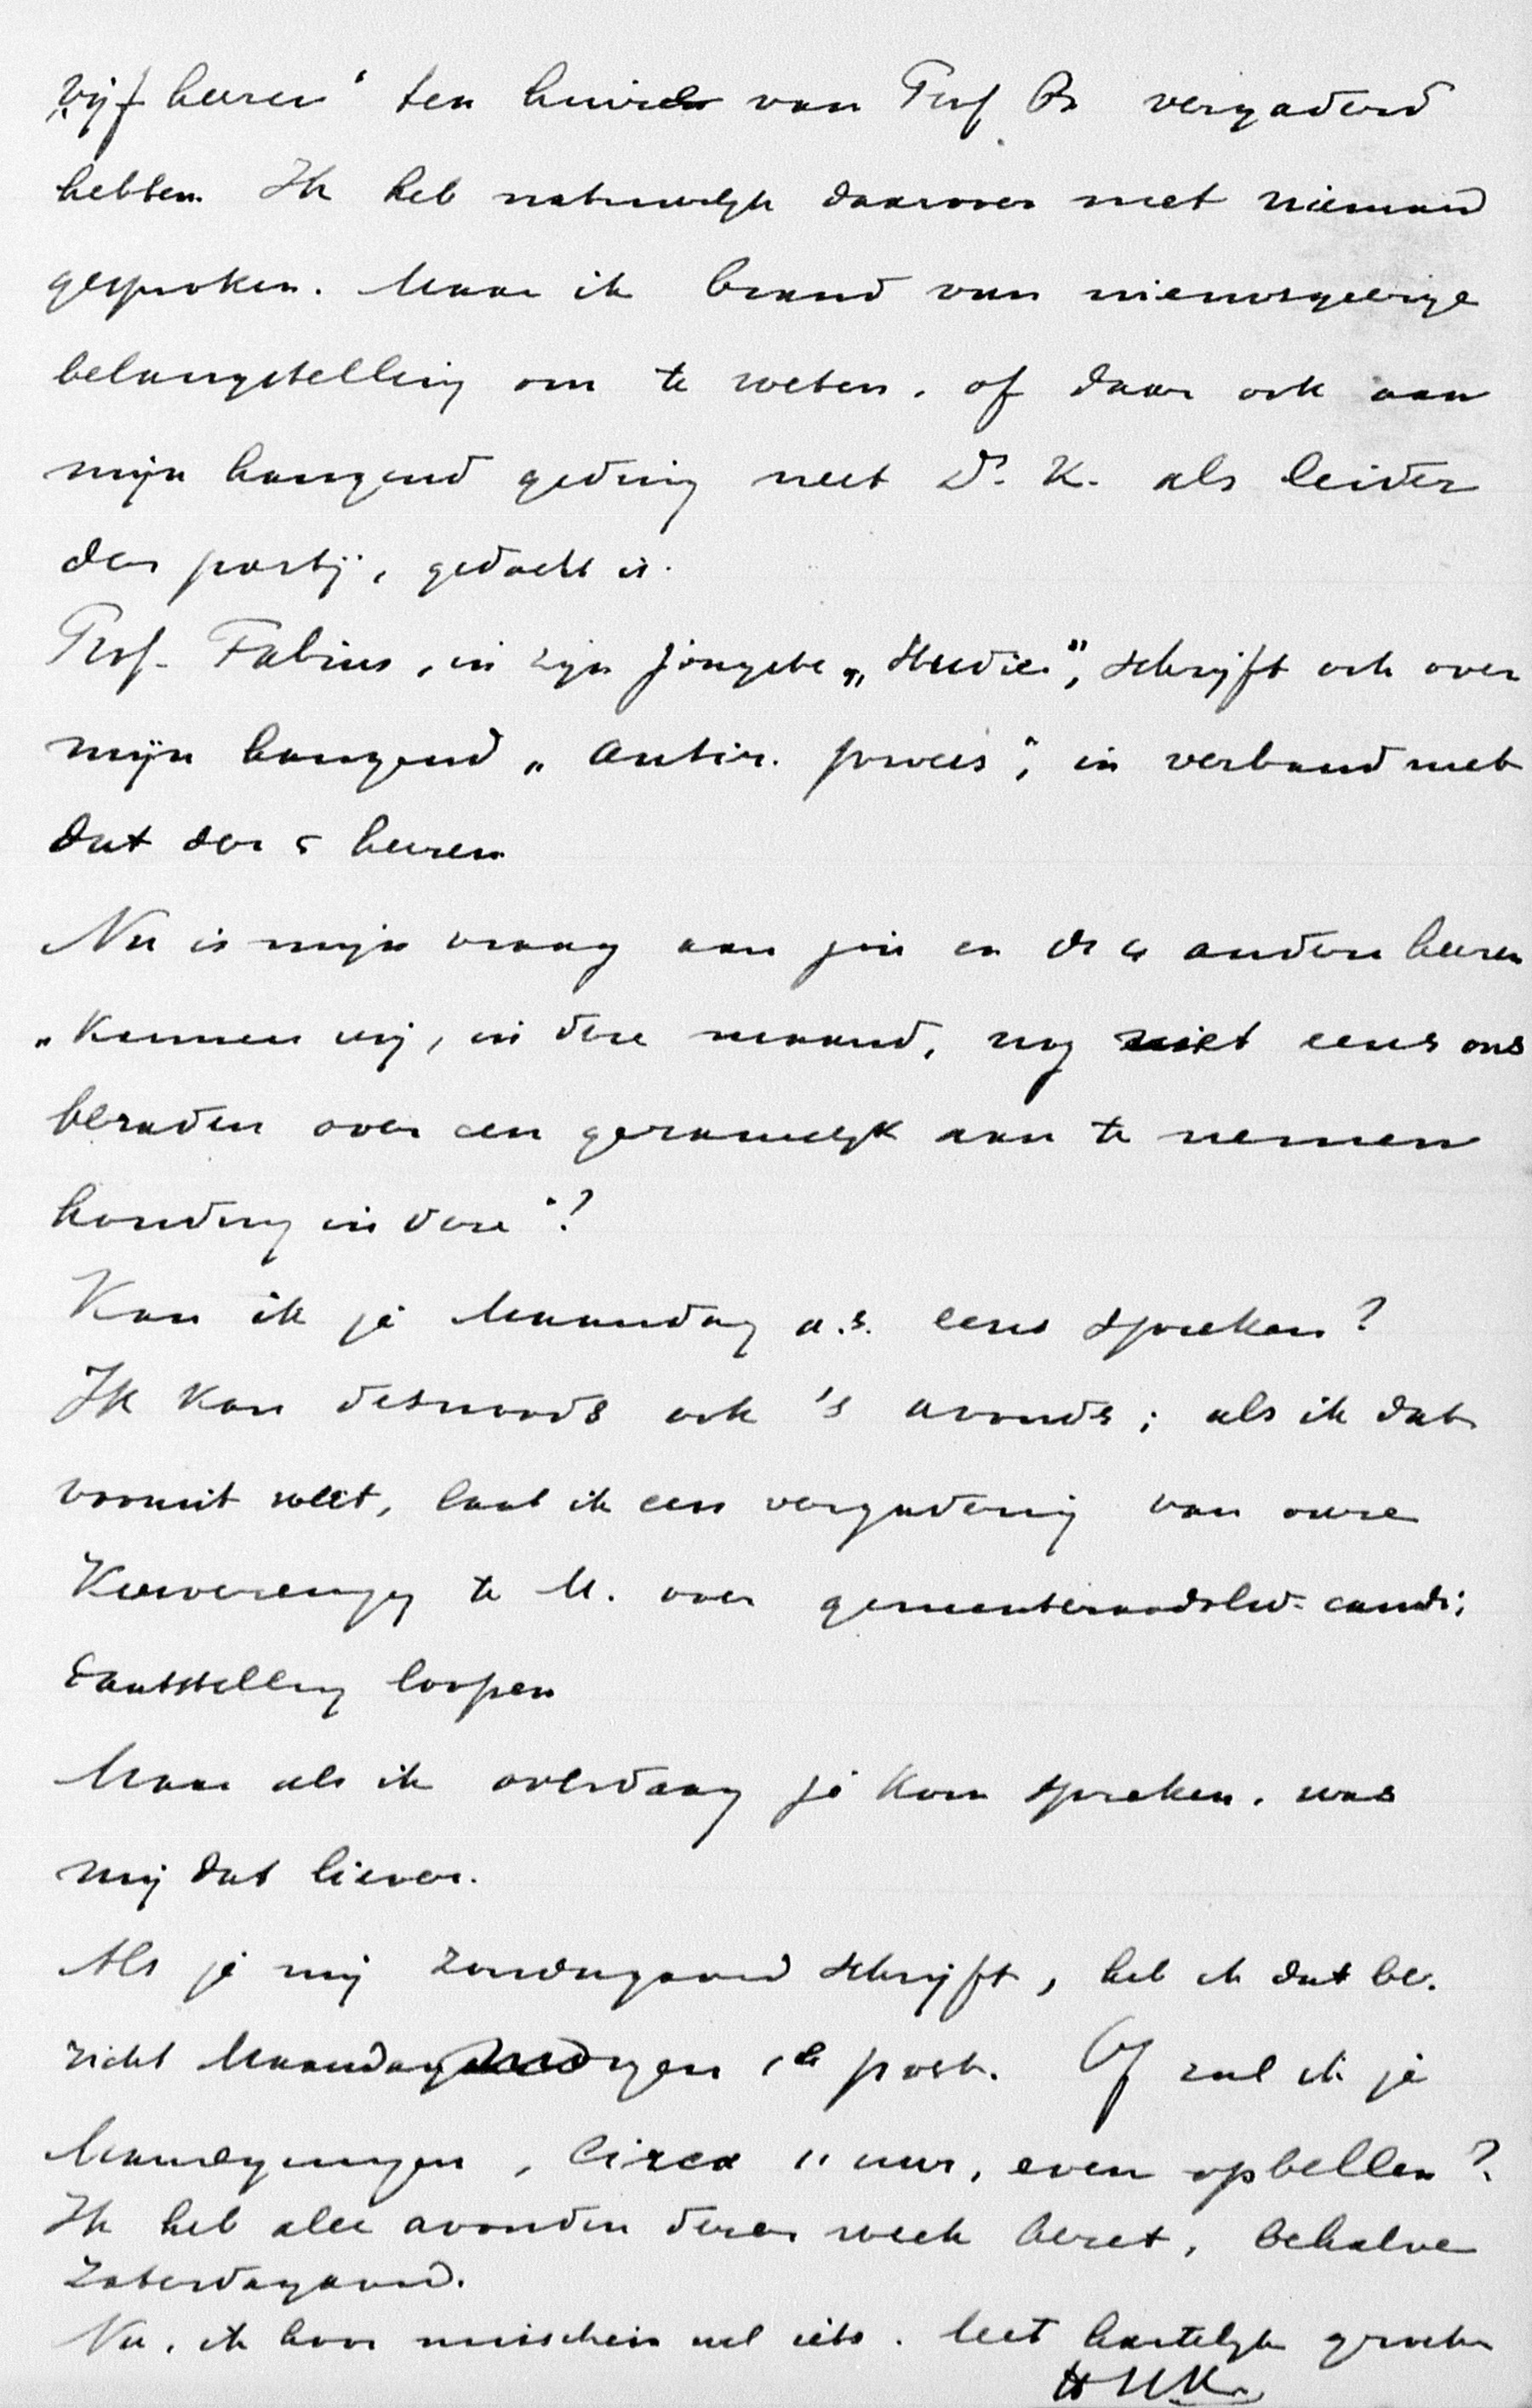 „vijf heeren" ten huize van Prof B. vergaderd
hebben. Ik heb natuurlijk daarover met niemand
gesproken. Maar ik brand van nieuwsgierige
belangstelling om te weten, of daar ook aan
mijn hangend geding met Dr. K. als leider
der partij, gedacht is.
Prof. Fabius, in zijn jongste „Studiën", schrijft ook over
mijn hangend „antir. proces", in verband met
dat der 5 heeren
Nu is mijn vraag aan jou en de 4 andere heeren
„Kunnen wij, in deze maand, nog niet eens ons
beraden over een gezamelijk aan te nemen
houding in deze"?
Kan ik je Maandag a.s. eens spreken?
Ik kan desnoods ook 's avonds; als ik dat
vooruit weet, laat ik een vergadering van onze
Kiesvereeniging te M. over gemeenteraadsled-candi-
daatstelling loopen
Maar als ik overdag je kon spreken, was
mij dat liever.
Als je mij Zondagavond schrijft, heb ik dat be-
richt Maandagmorgen 1e post. Of zal ik je
Maandagmorgen, circa 11 uur, even opbellen?
Ik heb alle avonden dezer week bezet, behalve
Zaterdagavond.
Nu, ik hoor misschien wel iets. Met hartelijke groeten